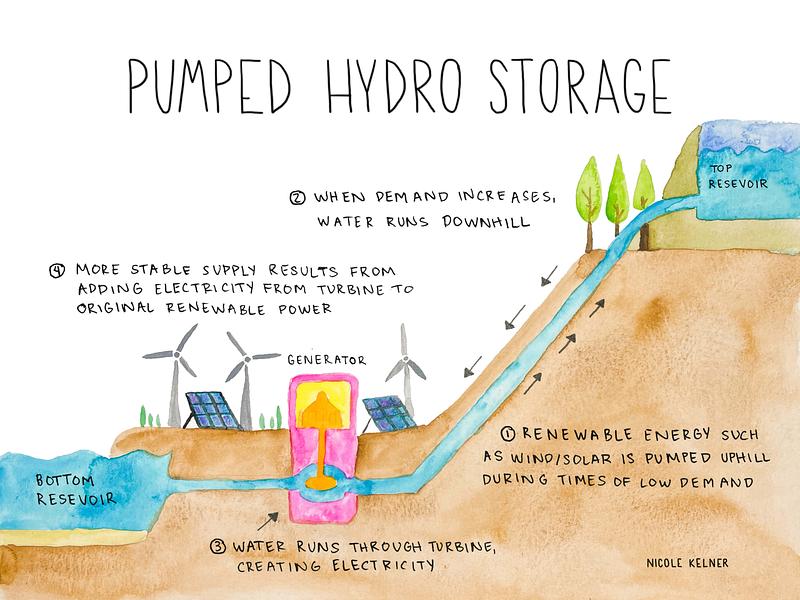 PUMPED HYDRO STORAGE
TOP
RESEVOIR
② WHEN DEMAND INCREASES,
WATER RUNS DOWNHILL
④ MORE STABLE SUPPLY RESULTS FROM
ADDING ELECTRICITY FROM TURBINE TO
ORIGINAL RENEWABLE POWER
GENERATOR
① RENEWABLE ENERGY SUCH
AS WIND/SOLAR IS PUMPED UPHILL
DURING TIMES OF LOW DEMAND
BOTTOM
RESEVOIR
③ WATER RUNS THROUGH TURBINE,
CREATING ELECTRICITY
NICOLE KELNER